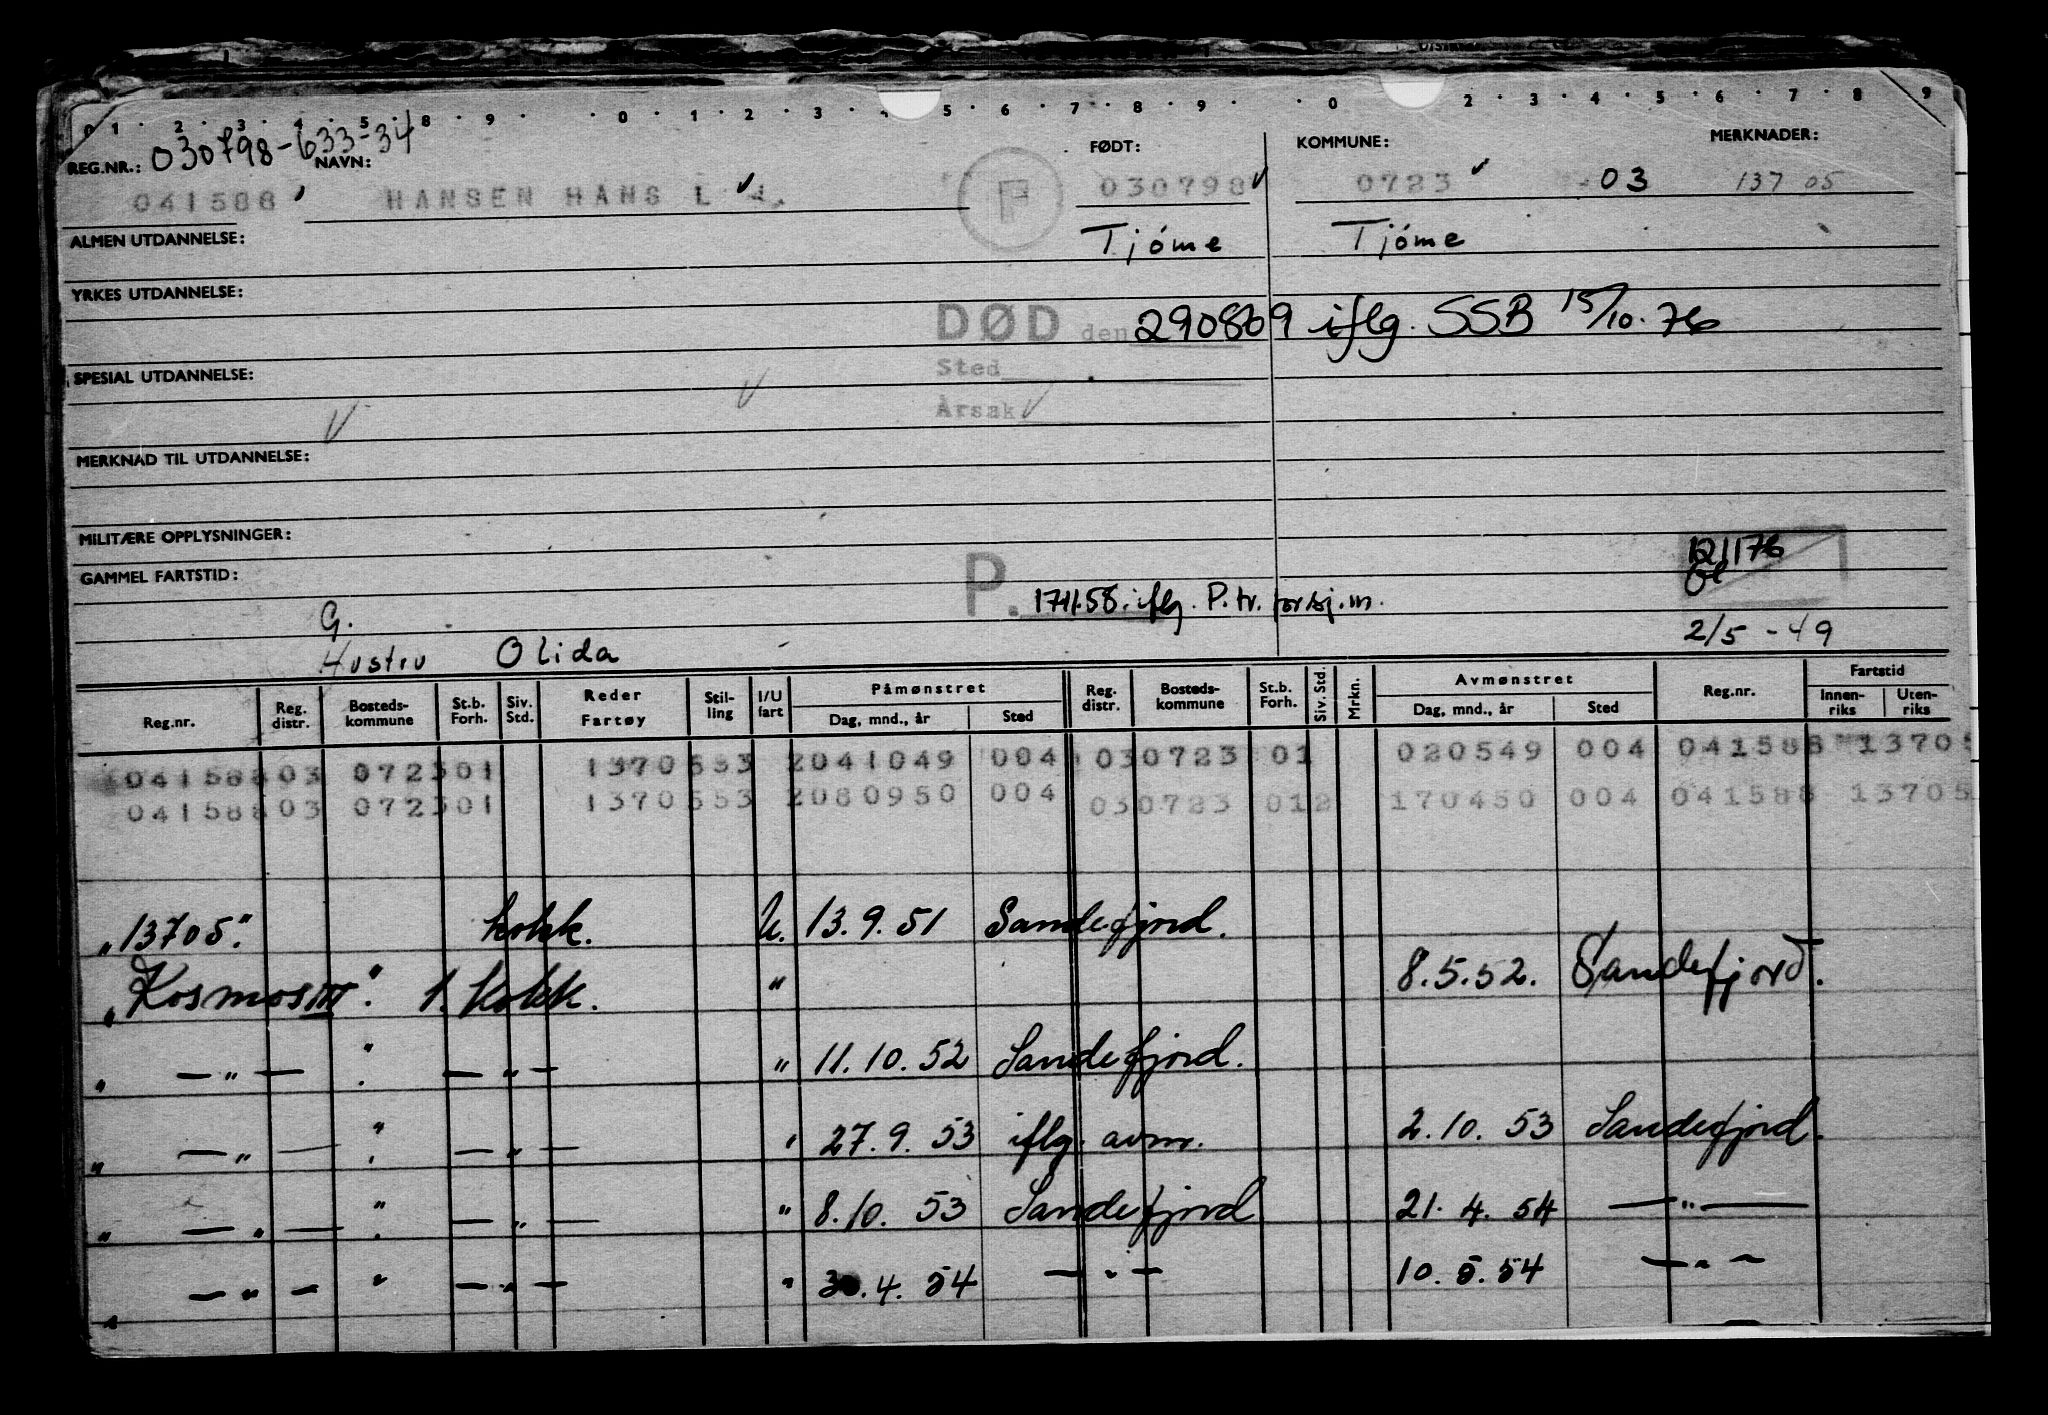 0 1 · 2 · 3 · 4 · 5 · 8 · 9 · · 0 · 1 · 2 · 3 · 5 · 6 · 7 · 8 · 9 · · 0 2 · 3 · 4 · 5 · 6 · 7 · 8 · 9
REG.NR.: 030798-633-34 NAVN: FØDT: KOMMUNE: MERKNADER:
041588 HANSEN HANS L F 030798 0723 03 137 05
ALMEN UTDANNELSE: Tjöme Tjöme
YRKES UTDANNELSE:
DØD den 290869 iflg. SSB 15/10.76
SPESIAL UTDANNELSE: Sted
Årsak
MERKNAD TIL UTDANNELSE:
MILITÆRE OPPLYSNINGER:
12/176
GAMMEL FARTSTID:
P. 17/1.58. iflg. P.tr. for sj.m.
G. 2/5 - 49
Hustru Olida
Reg.nr. Reg. distr. Bosteds-kommune St.b. Forh. Siv. Std. Reder Fartøy Stil-ling I/U fart Påmønstret Dag, mnd., år Sted Reg. distr. Bosteds-kommune St.b. Forh. Siv. Std. Mrkn. Avmønstret Dag, mnd., år Sted Reg.nr. Fartstid Innen-riks Uten-riks
041588 03 0723 01 1370 553 2 041049 004 03 0723 01 020549 004 041588 13705
041588 03 0723 01 1370 553 2 080950 004 03 0723 012 170450 004 041588 13705
„13705." kokk. U. 13.9.51 Sandefjord.
„Kosmos III". 1. kokk. " 8.5.52. Sandefjord.
„ — " — ". — " — " 11.10.52 Sandefjord.
„ — " — ". — " — " 27.9.53 iflg. avm. 2.10.53 Sandefjord.
„ — " — ". — " — " 8.10.53 Sandefjord 21.4.54 — " —
„ — " — " — " — " 30.4.54 — " — 10.5.54 — " —